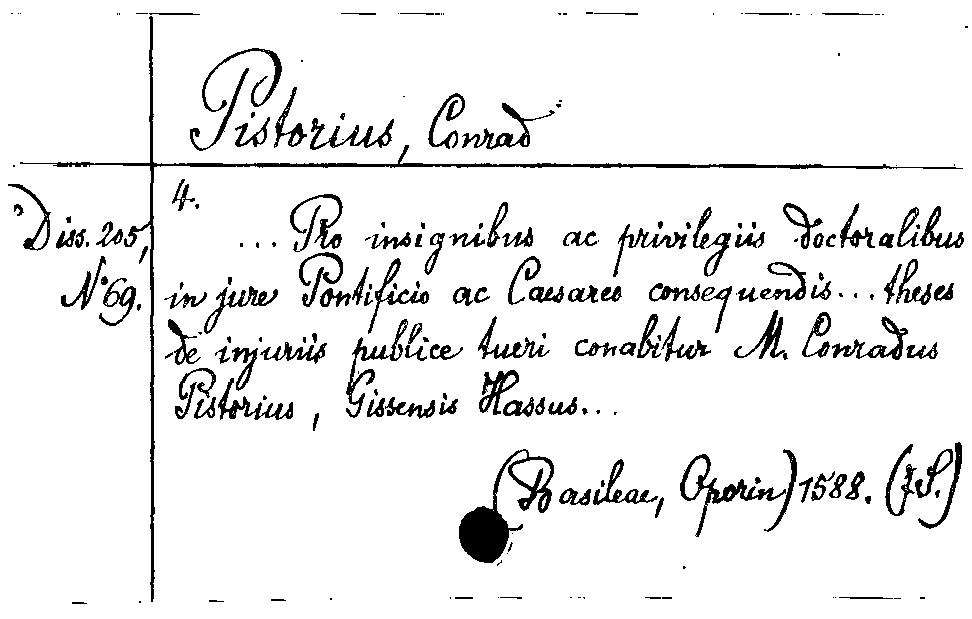 Pistorius, Conrad
Diss. 205,
N°69.
4.
... Pro insignibus ac privilegiis doctoralibus
in jure Pontificio ac Caesareo consequendis... theses
de injuriis publice tueri conabitur M. Conradus
Pistorius, Gissensis Hassus...
(Basileae, Oporin) 1588. (JS.)